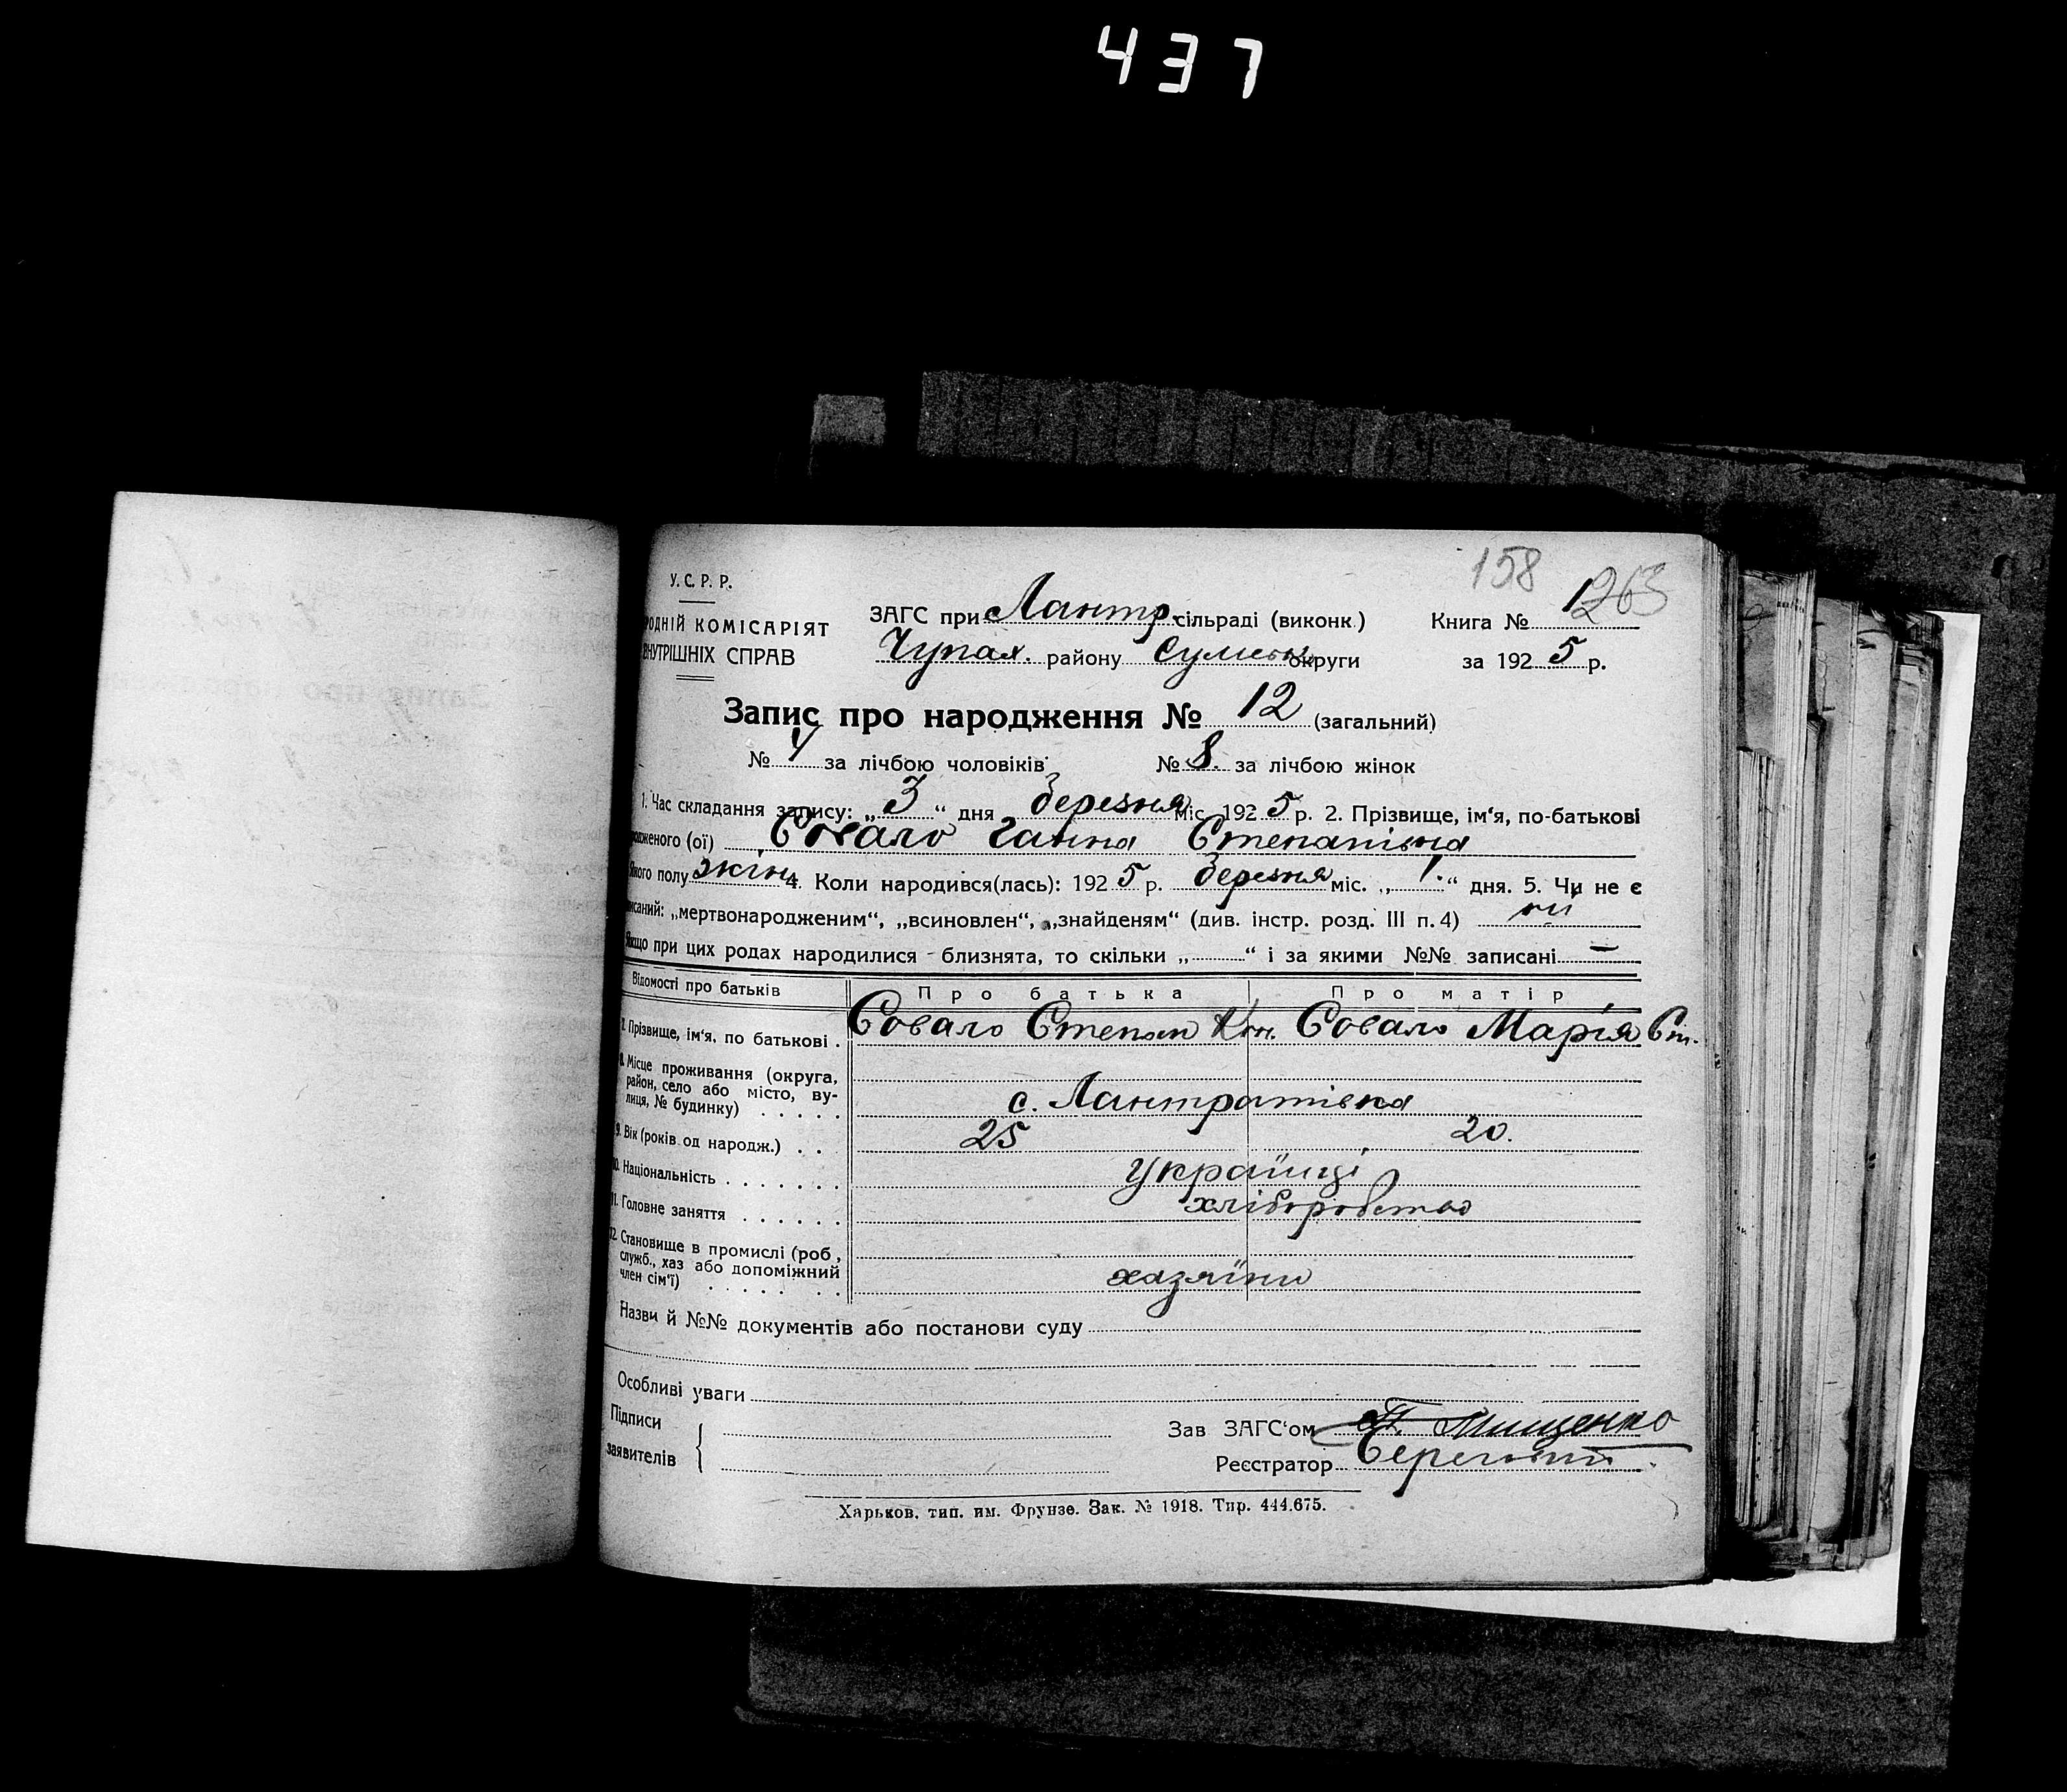 437
158
У. С. Р. Р.
1263
РОДНІЙ КОМІСАРІЯТ ЗАГС при Лантр. сільраді (виконк.) Книга № 1
ВНУТРІШНІХ СПРАВ Чупах. району Сумськ. округи за 1925 р.
Запис про народження № 12 (загальний)
№ 4 за лічбою чоловіків № 8. за лічбою жінок
1. Час складання запису: „3“ дня Березня міс. 1925 р. 2. Прізвище, ім‘я, по-батькові
родженого (ої) Совало Ганна Степанівна
Якого полу жін. 4. Коли народився(лась): 1925 р. Березня міс. „1.“ дня. 5. Чи не є
писаний: „мертвонародженим“, „всиновлен“, „знайденям“ (див. інстр. розд. III п. 4) ні
Якщо при цих родах народилися близнята, то скільки „ “ і за якими №№ записані —
Відомості про батьків Про батька Про матір
7. Прізвище, ім‘я, по батькові . Совало Степан Кон. Совало Марія Ст.
8. Місце проживання (округа, район, село або місто, вулиця, № будинку) с. Лантратівка
9. Вік (років од народж.) 25 20.
10. Національність Українці
11. Головне заняття хліборобство
12. Становище в промислі (роб., служб., хаз або допоміжний член сім‘ї) хазяїни
Назви й №№ документів або постанови суду
Особливі уваги
Підписи заявителів
Зав ЗАГС‘ом П. Мищенко
Реєстратор
Харьков, тип. им. Фрунзе. Зак. № 1918. Тир. 444.675.